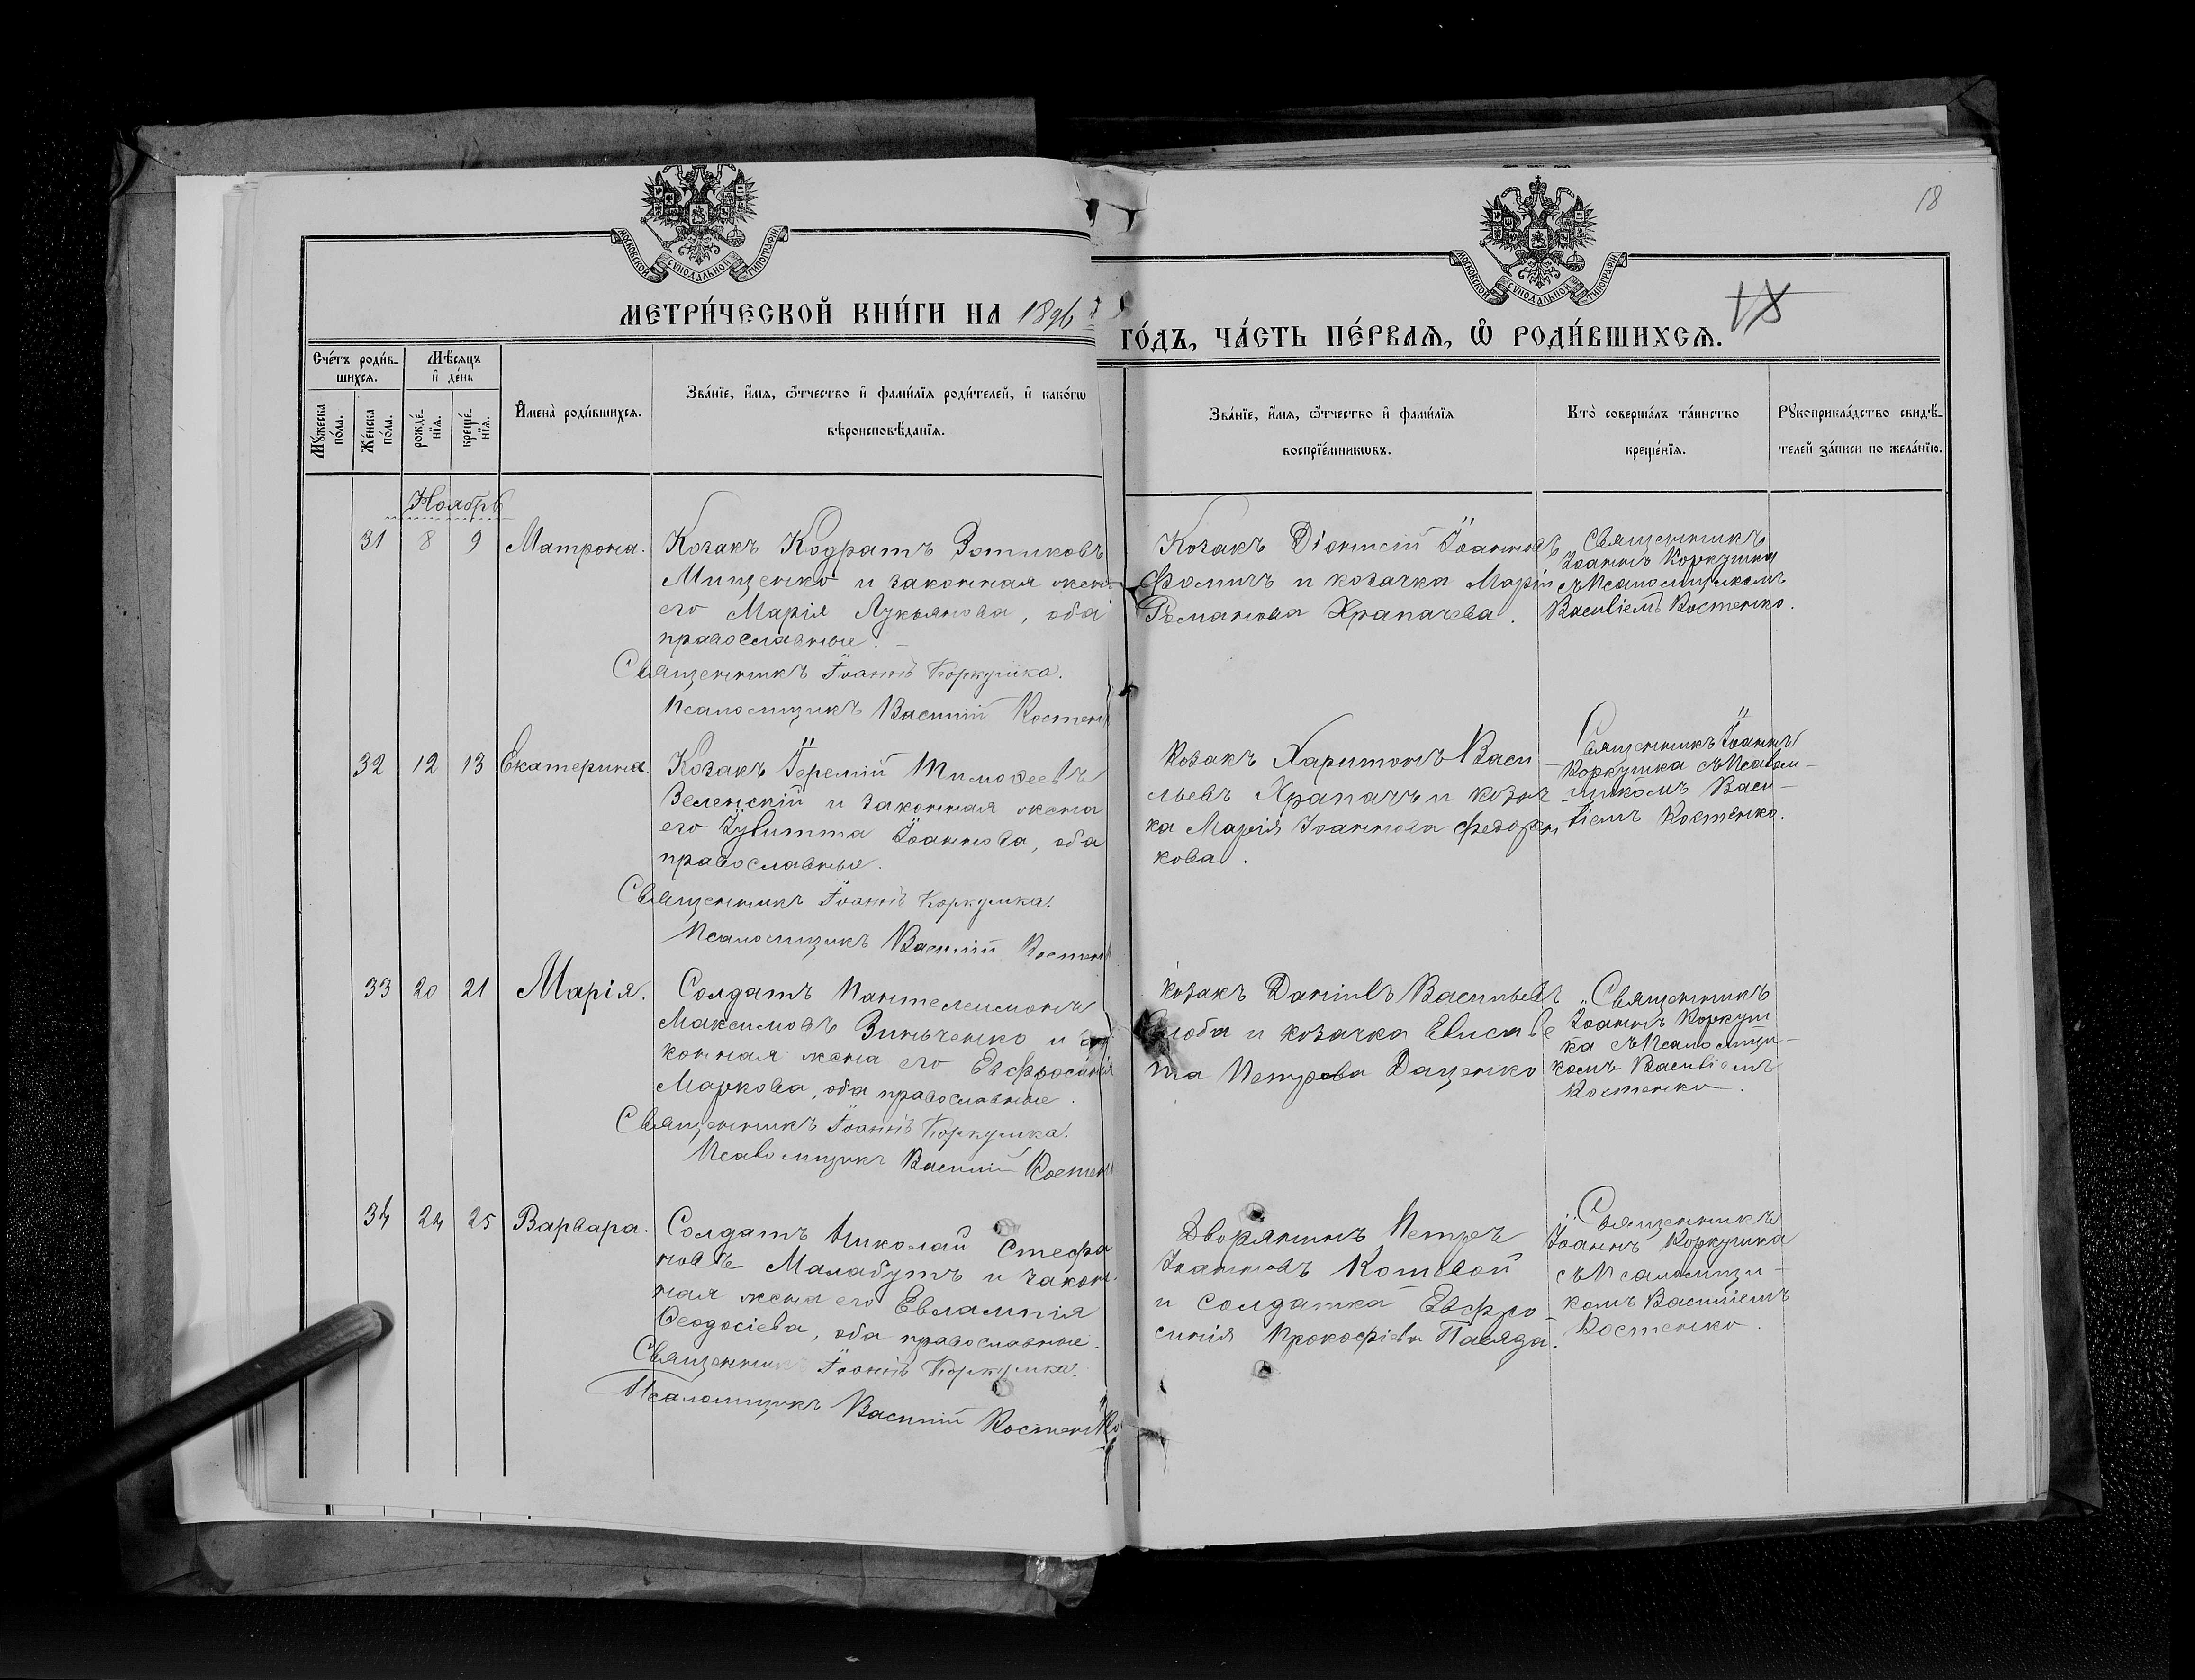 18
МОСКОВСКОЙ СѴНОДАЛЬНОЙ ТИПОГРАФІИ
МОСКОВСКОЙ СѴНОДАЛЬНОЙ ТИПОГРАФІИ
МЕТРИ́ЧЕСКОЙ КНИ́ГИ НА 1896
ГО́ДЪ, ЧА́СТЬ ПЕ́РВАѦ, Ѿ РОДИ́ВШИХСѦ.
18
Сче́тъ роди́в-
шихсѧ.
Мꙋ́жеска
по́ла.
Же́нска
по́ла.
Мѣ́сѧцъ
и҆ де́нь
рожде́-
нїѧ.
креще́-
нїѧ.
И҆мена̀ роди́вшихсѧ.
Зва́нїе, и҆́мѧ, ѻ҆́тчество и҆ фами́лїѧ роди́телей, и҆ како́гѡ
вѣроисповѣ́данїѧ.
Зва́нїе, и҆́мѧ, ѻ҆́тчество и҆ фами́лїѧ
воспрїе́мникѡвъ.
Кто̀ соверша́лъ та́инство
креще́нїѧ.
Рꙋкоприкла́дство свидѣ́-
телей за́писи по жела́нїю.
Ноябрь
31 8 9 Матрона.
Козакъ Кодратъ Зотиковъ
Мищенко и законная жена
его Марія Лукьянова, оба
православные.
Священникъ Іоаннъ Коркушка.
Псаломщикъ Василій Костен
Козакъ Діонисій Іоанновъ
Фомичъ и козачка Марія
Романова Храпачева.
Священникъ
Іоаннъ Коркушка
съ Псаломщикомъ
Василіемъ Костенко.
32 12 13 Екатерина.
Козакъ Іеремій Тимоѳеевъ
Зеленскій и законная жена
его Іулитта Іоаннова, оба
православные.
Священникъ Іоаннъ Коркушка.
Псаломщикъ Василій Костен
Козакъ Харитонъ Васи-
льевъ Храпачъ и козач-
ка Марія Іоаннова Федорен
кова.
Священникъ Іоаннъ
Коркушка съ Псалом-
щикомъ Васи-
ліемъ Костенко.
33 20 21 Марія.
Солдатъ Пантелеимонъ
Максимовъ Зинченко и за
конная жена его Евфросинія
Маркова, оба православные.
Священникъ Іоаннъ Коркушка.
Псаломщикъ Василій Костен
Козакъ Даніилъ Васильевъ
и козачка Елисаве
та Петрова Даценко
Священникъ
Іоаннъ Коркуш
ка съ Псаломщи-
комъ Василіемъ
Костенко.
34 24 25 Варвара.
Солдатъ Николай Стефа
новъ Малабутъ и закон-
ная жена его Евлампія
Ѳеодосіева, оба православные.
Священникъ Іоаннъ Коркушка.
Псаломщикъ Василій Костенко
Дворянинъ Петръ
Іоанновъ Котовой
и солдатка Евфро
синія Прокофіева Пасяда.
Священникъ
Іоаннъ Коркушка
съ Псаломщи-
комъ Василіемъ
Костенко.